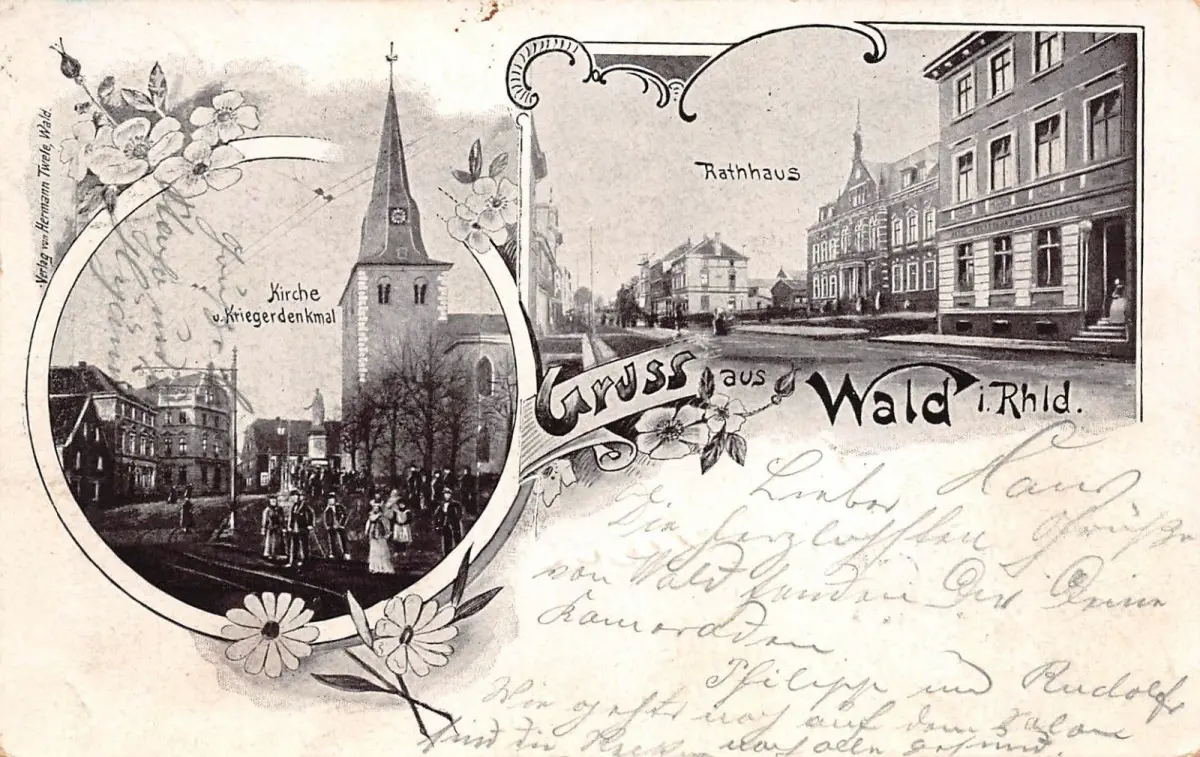 Verlag von Hermann Twele, Wald.
Kirche
u. Kriegerdenkmal
Rathhaus
Gruss aus Wald i. Rhld.
Lieber Hans
Die herzlichsten Grüße
von Wald senden Dir Deine
Kameraden
Philipp und Rudolf
Wie geht's noch auf dem
sind die noch alle gesund.